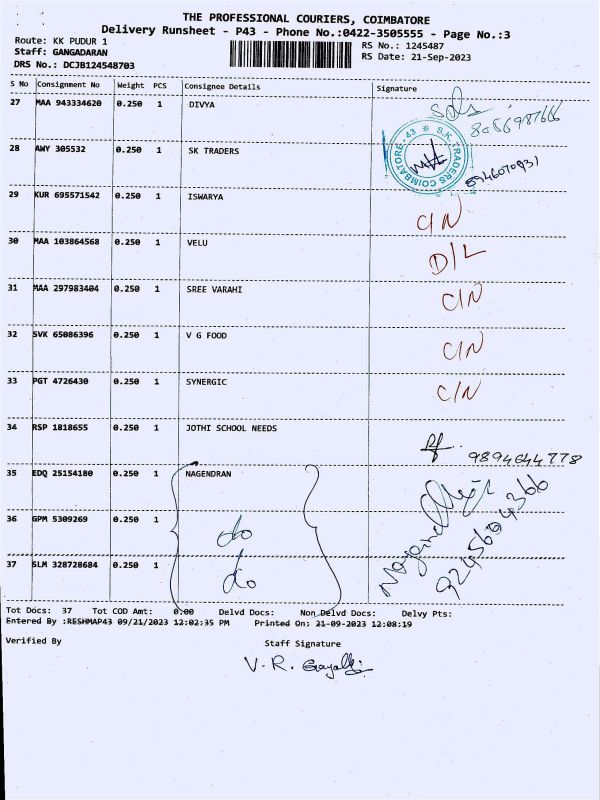 THE PROFESSIONAL COURIERS, COIMBATORE
Delivery Runsheet - P43 - Phone No.:0422-3505555 - Page No.:3
Route: KK PUDUR 1
Staff: GANGADARAN
DRS No.: DCJB124548703
RS No.: 1245487
RS Date: 21-Sep-2023
S No Consignment No Weight PCS Consignee Details Signature
27 MAA 943334620 0.250 1 DIVYA
28 AWY 305532 0.250 1 SK TRADERS
S.K. TRADERS COIMBATORE-43
29 KUR 695571542 0.250 1 ISWARYA C/N
30 MAA 103864568 0.250 1 VELU D/L
31 MAA 297983404 0.250 1 SREE VARAHI C/N
32 SVK 65086396 0.250 1 V G FOOD C/N
33 PGT 4726430 0.250 1 SYNERGIC C/N
34 RSP 1818655 0.250 1 JOTHI SCHOOL NEEDS 9894644778
35 EDQ 25154180 0.250 1 NAGENDRAN
36 GPM 5309269 0.250 1 do
37 SLM 328728684 0.250 1 do
Tot Docs: 37 Tot COD Amt: 0.00 Delvd Docs: Non Delvd Docs: Delvy Pts:
Entered By :RESHMAP43 09/21/2023 12:02:35 PM Printed On: 21-09-2023 12:08:19
Verified By Staff Signature
V. R.